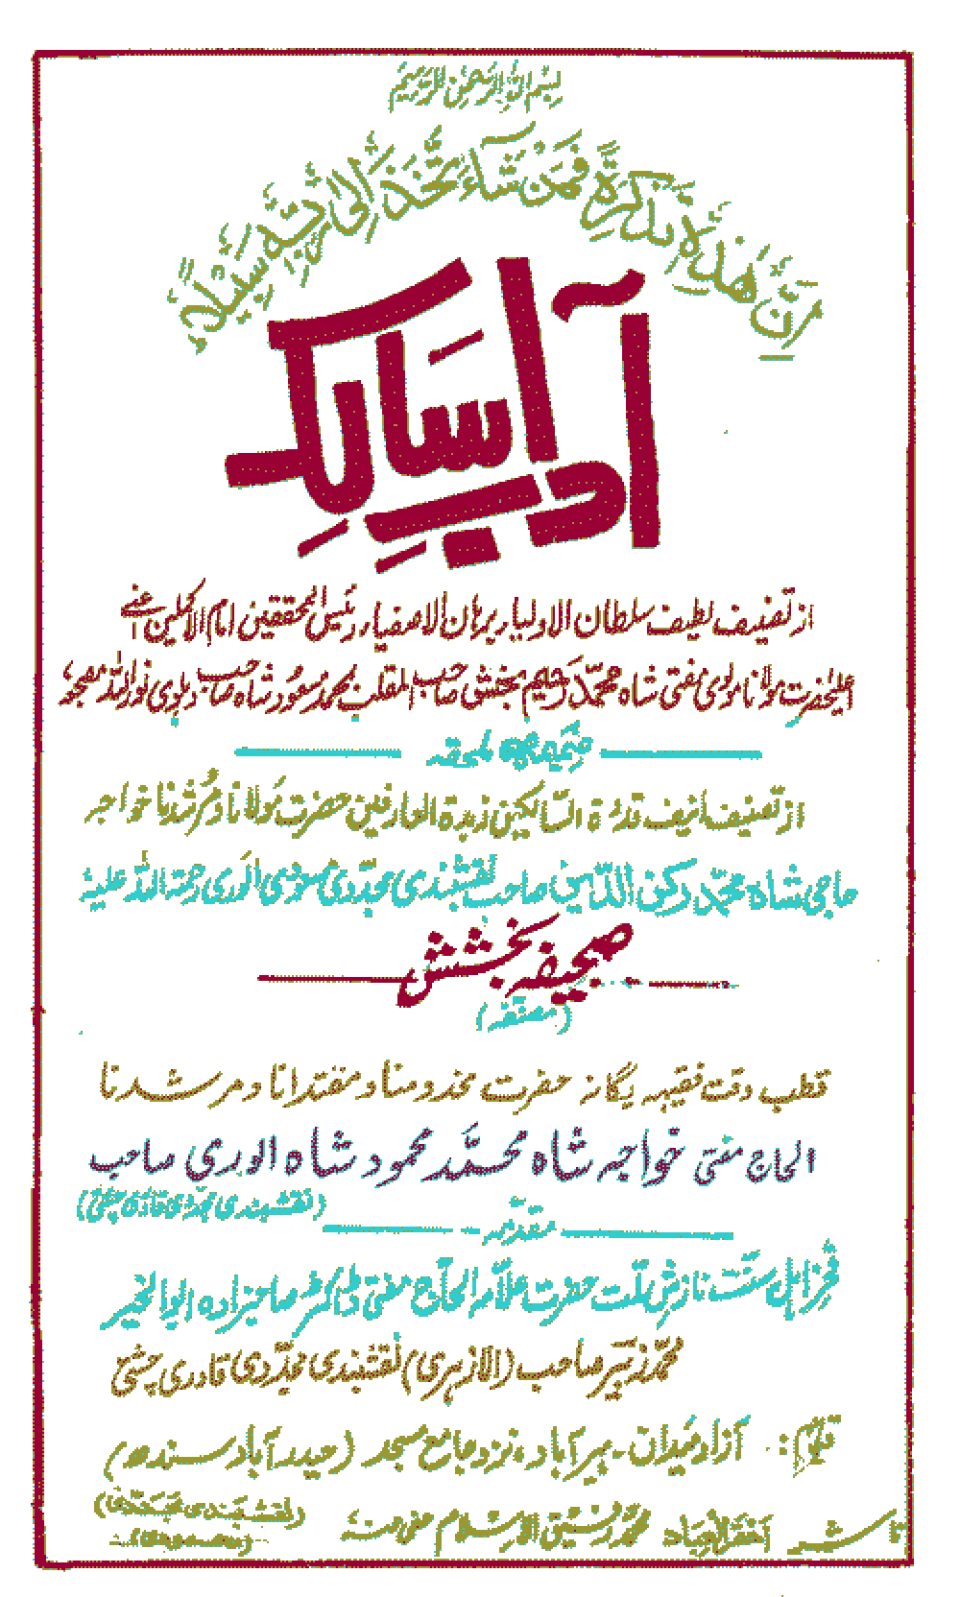 بِسْمِ اللهِ الرَّحْمٰنِ الرَّحِيْمِ
اِنَّ هٰذِهٖ تَذْكِرَةٌ فَمَنْ شَآءَ اتَّخَذَ اِلٰى رَبِّهٖ سَبِيْلًا
آداب سالک
از تصنیف لطیف سلطان الاولیاء برہان الاصفیاء رئیس المحققین امام الاکملین اعنی
اعلیٰحضرت مولانا مولوی مفتی شاہ محمد رحیم بخش صاحب الملقب بمحمد مسعود شاہ صاحب دہلوی نور اللہ مضجعہ
ضمیمہ ملحقہ
از تصنیف انیف قدوۃ السالکین زبدۃ العارفین حضرت مولانا و مرشدنا خواجہ
حاجی شاہ محمد رکن الدین صاحب نقشبندی مجددی مسعودی الوری رحمۃ اللہ علیہ
صحیفہ بخشش
(مصنفہ)
قطب وقت فقیہہ یگانہ حضرت مخدومنا و مقتدانا و مرشدنا
الحاج مفتی خواجہ شاہ محمد محمود شاہ الوری صاحب
(نقشبندی مجددی قادری چشتی)
مقدمہ
فخر اہل سنت نازش ملت حضرت علامہ الحاج مفتی ڈاکٹر صاحبزادہ ابوالخیر
محمد زبیر صاحب (الازہری) نقشبندی مجددی قادری چشتی
آزاد میدان۔ ہیر آباد، نزد جامع مسجد (حیدرآباد سندھ)
ناشر احقر العباد محمد رفیق الاسلام عفی عنہ (نقشبندی مجددی)
(مسعودی)